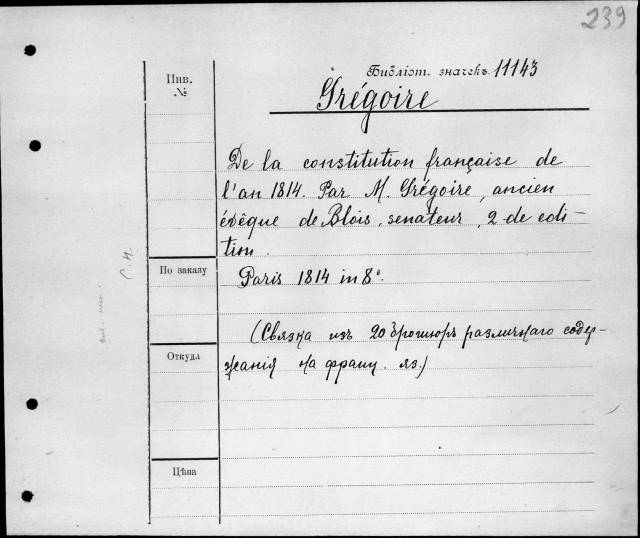 239
Инв.
№
Библіот. значекъ 11143
Grégoire
De la constitution française de
l'an 1814. Par M. Grégoire, ancien
évêque de Blois, senateur, 2 de edi-
tion.
По заказу
Paris 1814 in 8°.
(Связка изъ 20 брошюръ различнаго содер-
Откуда
жанія на франц. яз.)
Цѣна